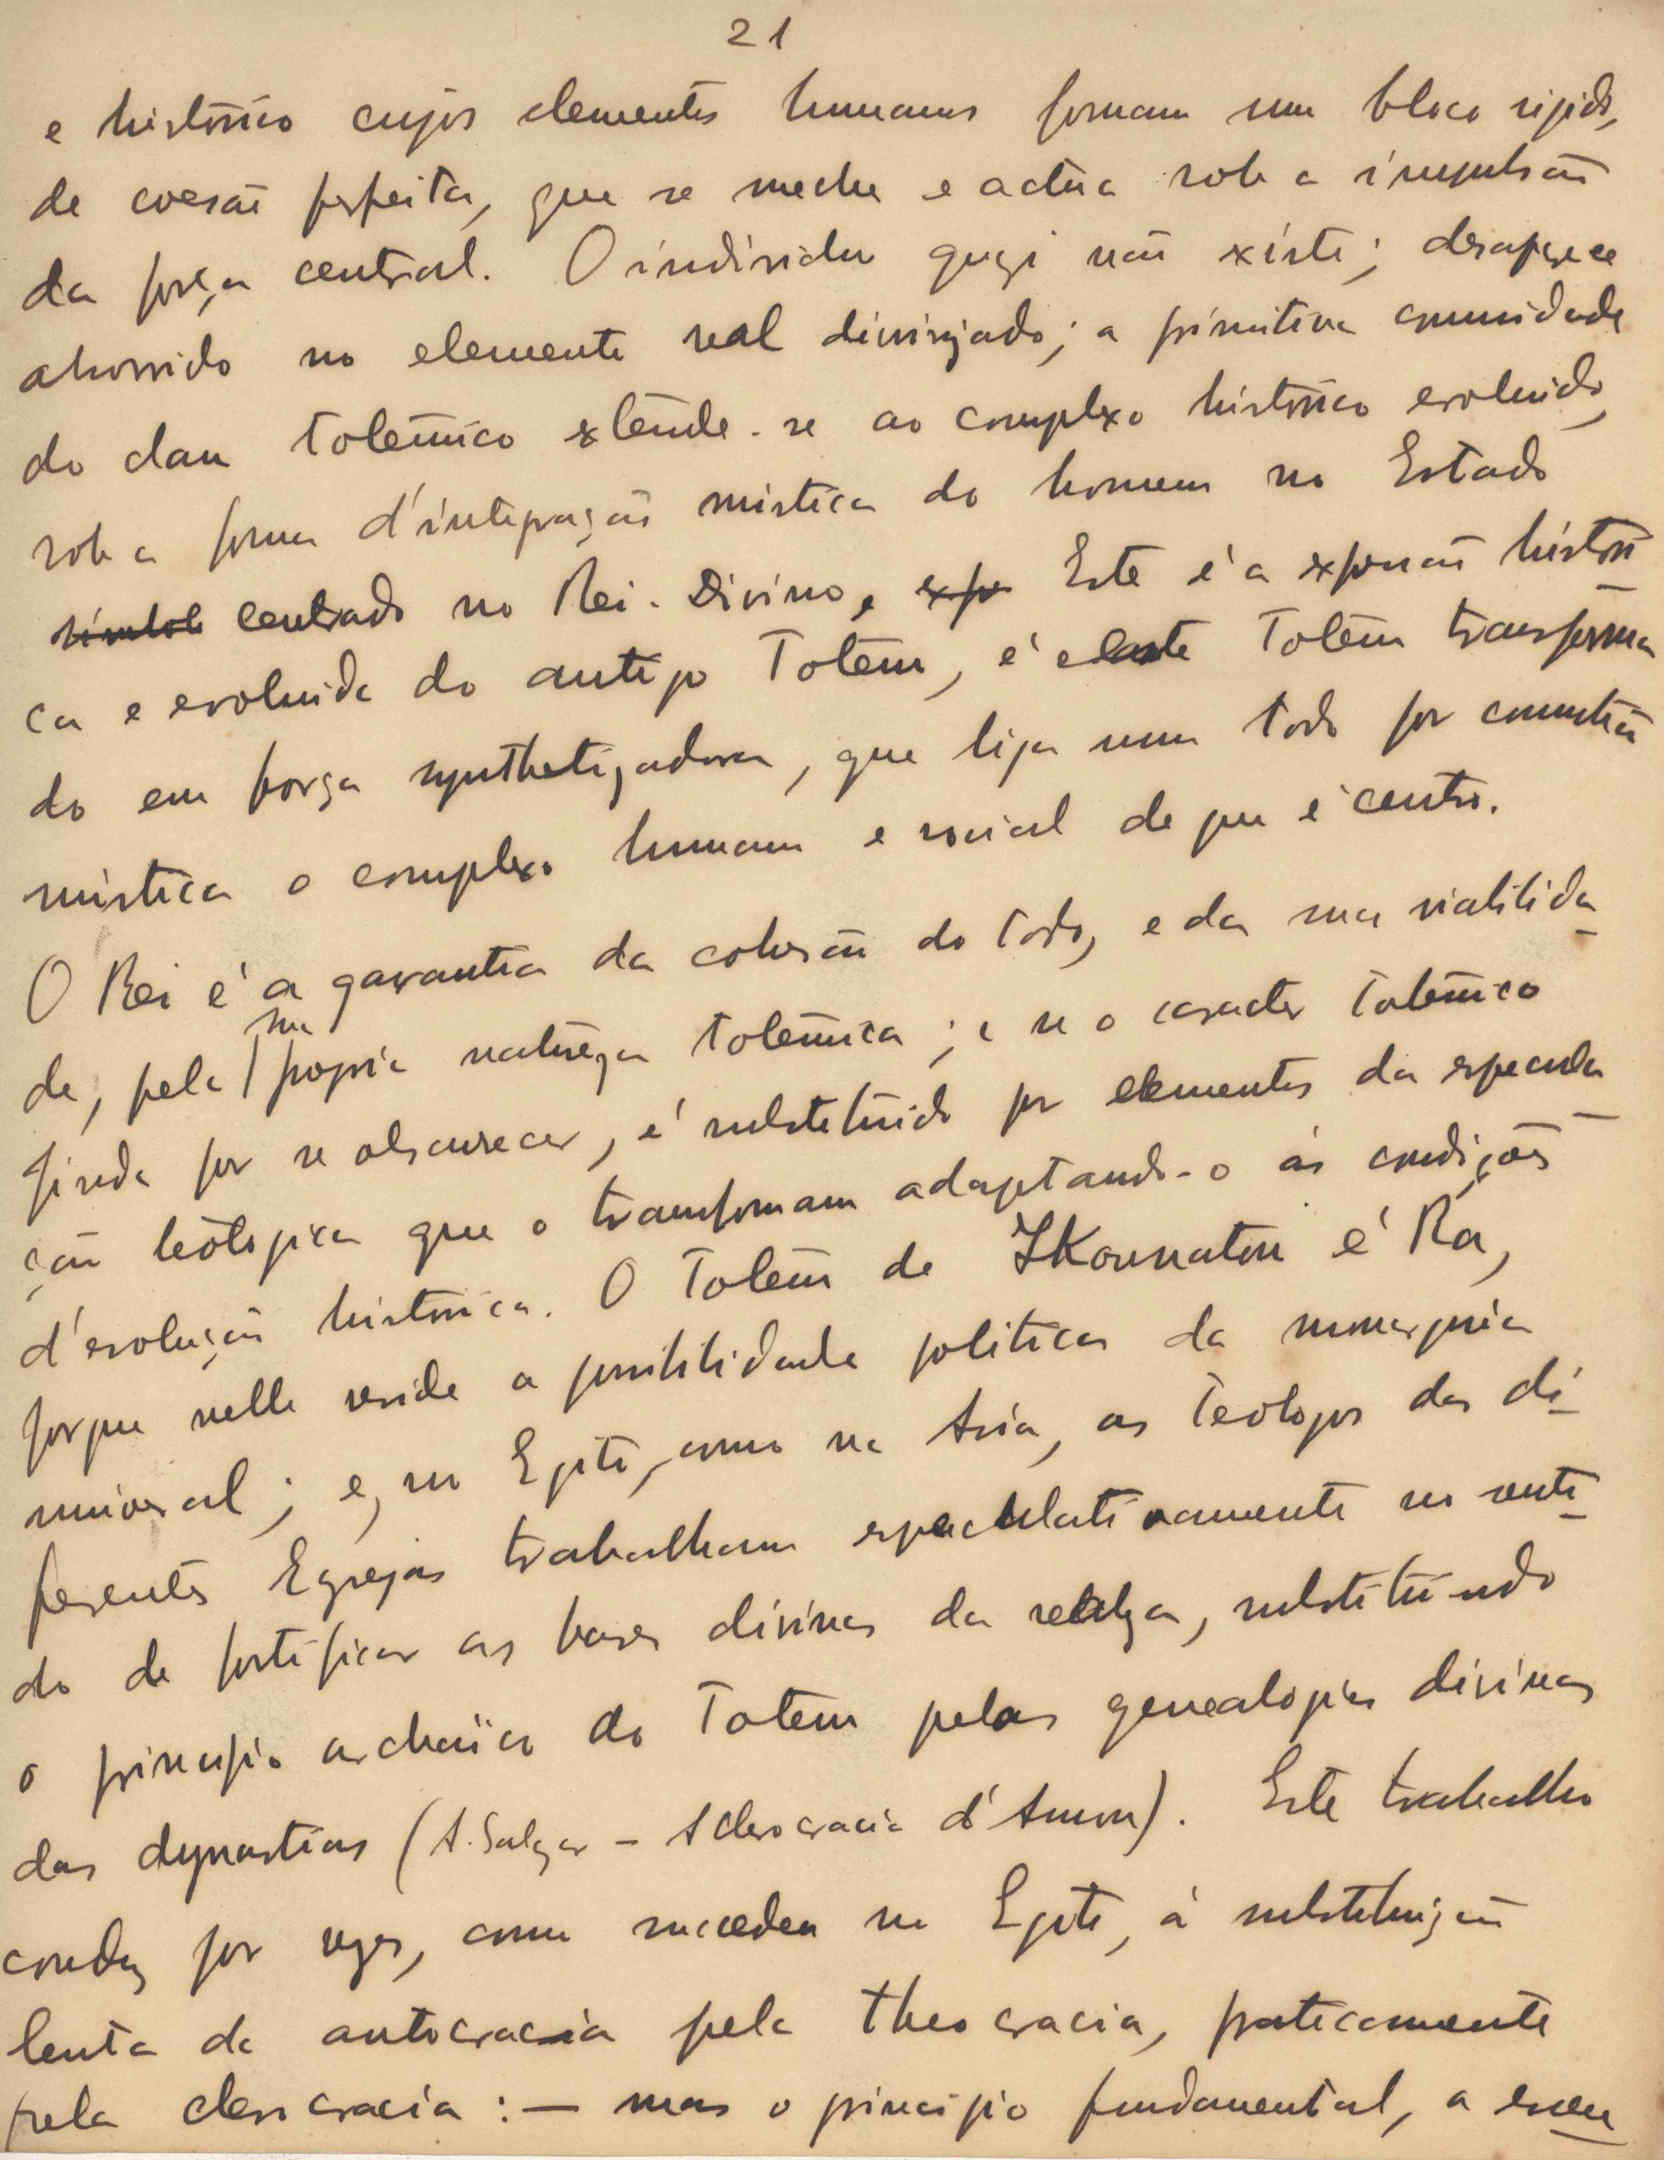 21
e historico cujos elementos humanos formam um bloco rigido,
de coesão perfeita, que se meche e actúa sob a impulsão
da força central. O individuo quazi não existe; desaparece
absorvido no elemento real divinizado; a primitiva comunidade
do clan totemico extende-se ao complexo historico evoluido,
sob a forma d'integração mistica do homem no Estado
centrado no Rei-Divino, Este é a expressão histori
ca e evoluida do antigo Totem, é este Totem transforma
do em força synthetizadora, que liga num todo por comunhão
mistica o complexo humano e social de que é centro.
O Rei é a garantia da cohesão do todo, e da sua viabilida_
de, pela sua propria natureza totemica; e se o caracter totemico
finda por se obscurecer, é substituido por elementos da especula_
ção teologica que o transformam adaptando-o ás condições
d'evolução historica. O Totem de IKounaton é Ra,
porque nelle reside a possibilidade politica da monarquia
universal; e, no Egito, como na Asia, os Teologos das di_
ferentes Egrejas trabalham especulativamente no senti_
do de fortificar as bases divinas da realeza, substituindo
o principio archaico do Totem pelas genealogias divinas
das dynastias (A. Salzar - A clerocracia d'Amon). Este trabalho
conduz por vezes, como succedeu no Egito, á substituição
lenta da autocracia pela theocracia, praticamente
pela clerocracia : — mas o principio fundamental, a essen_